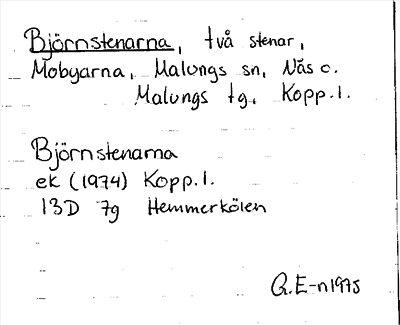 Björnstenarna, två stenar,
Mobyarna, Malungs sn, Näs c.
Malungs tg, Kopp.l.
Björnstenarna
ek (1974) Kopp.l.
13D 7g Hemmerkölen
G.E-n 1975